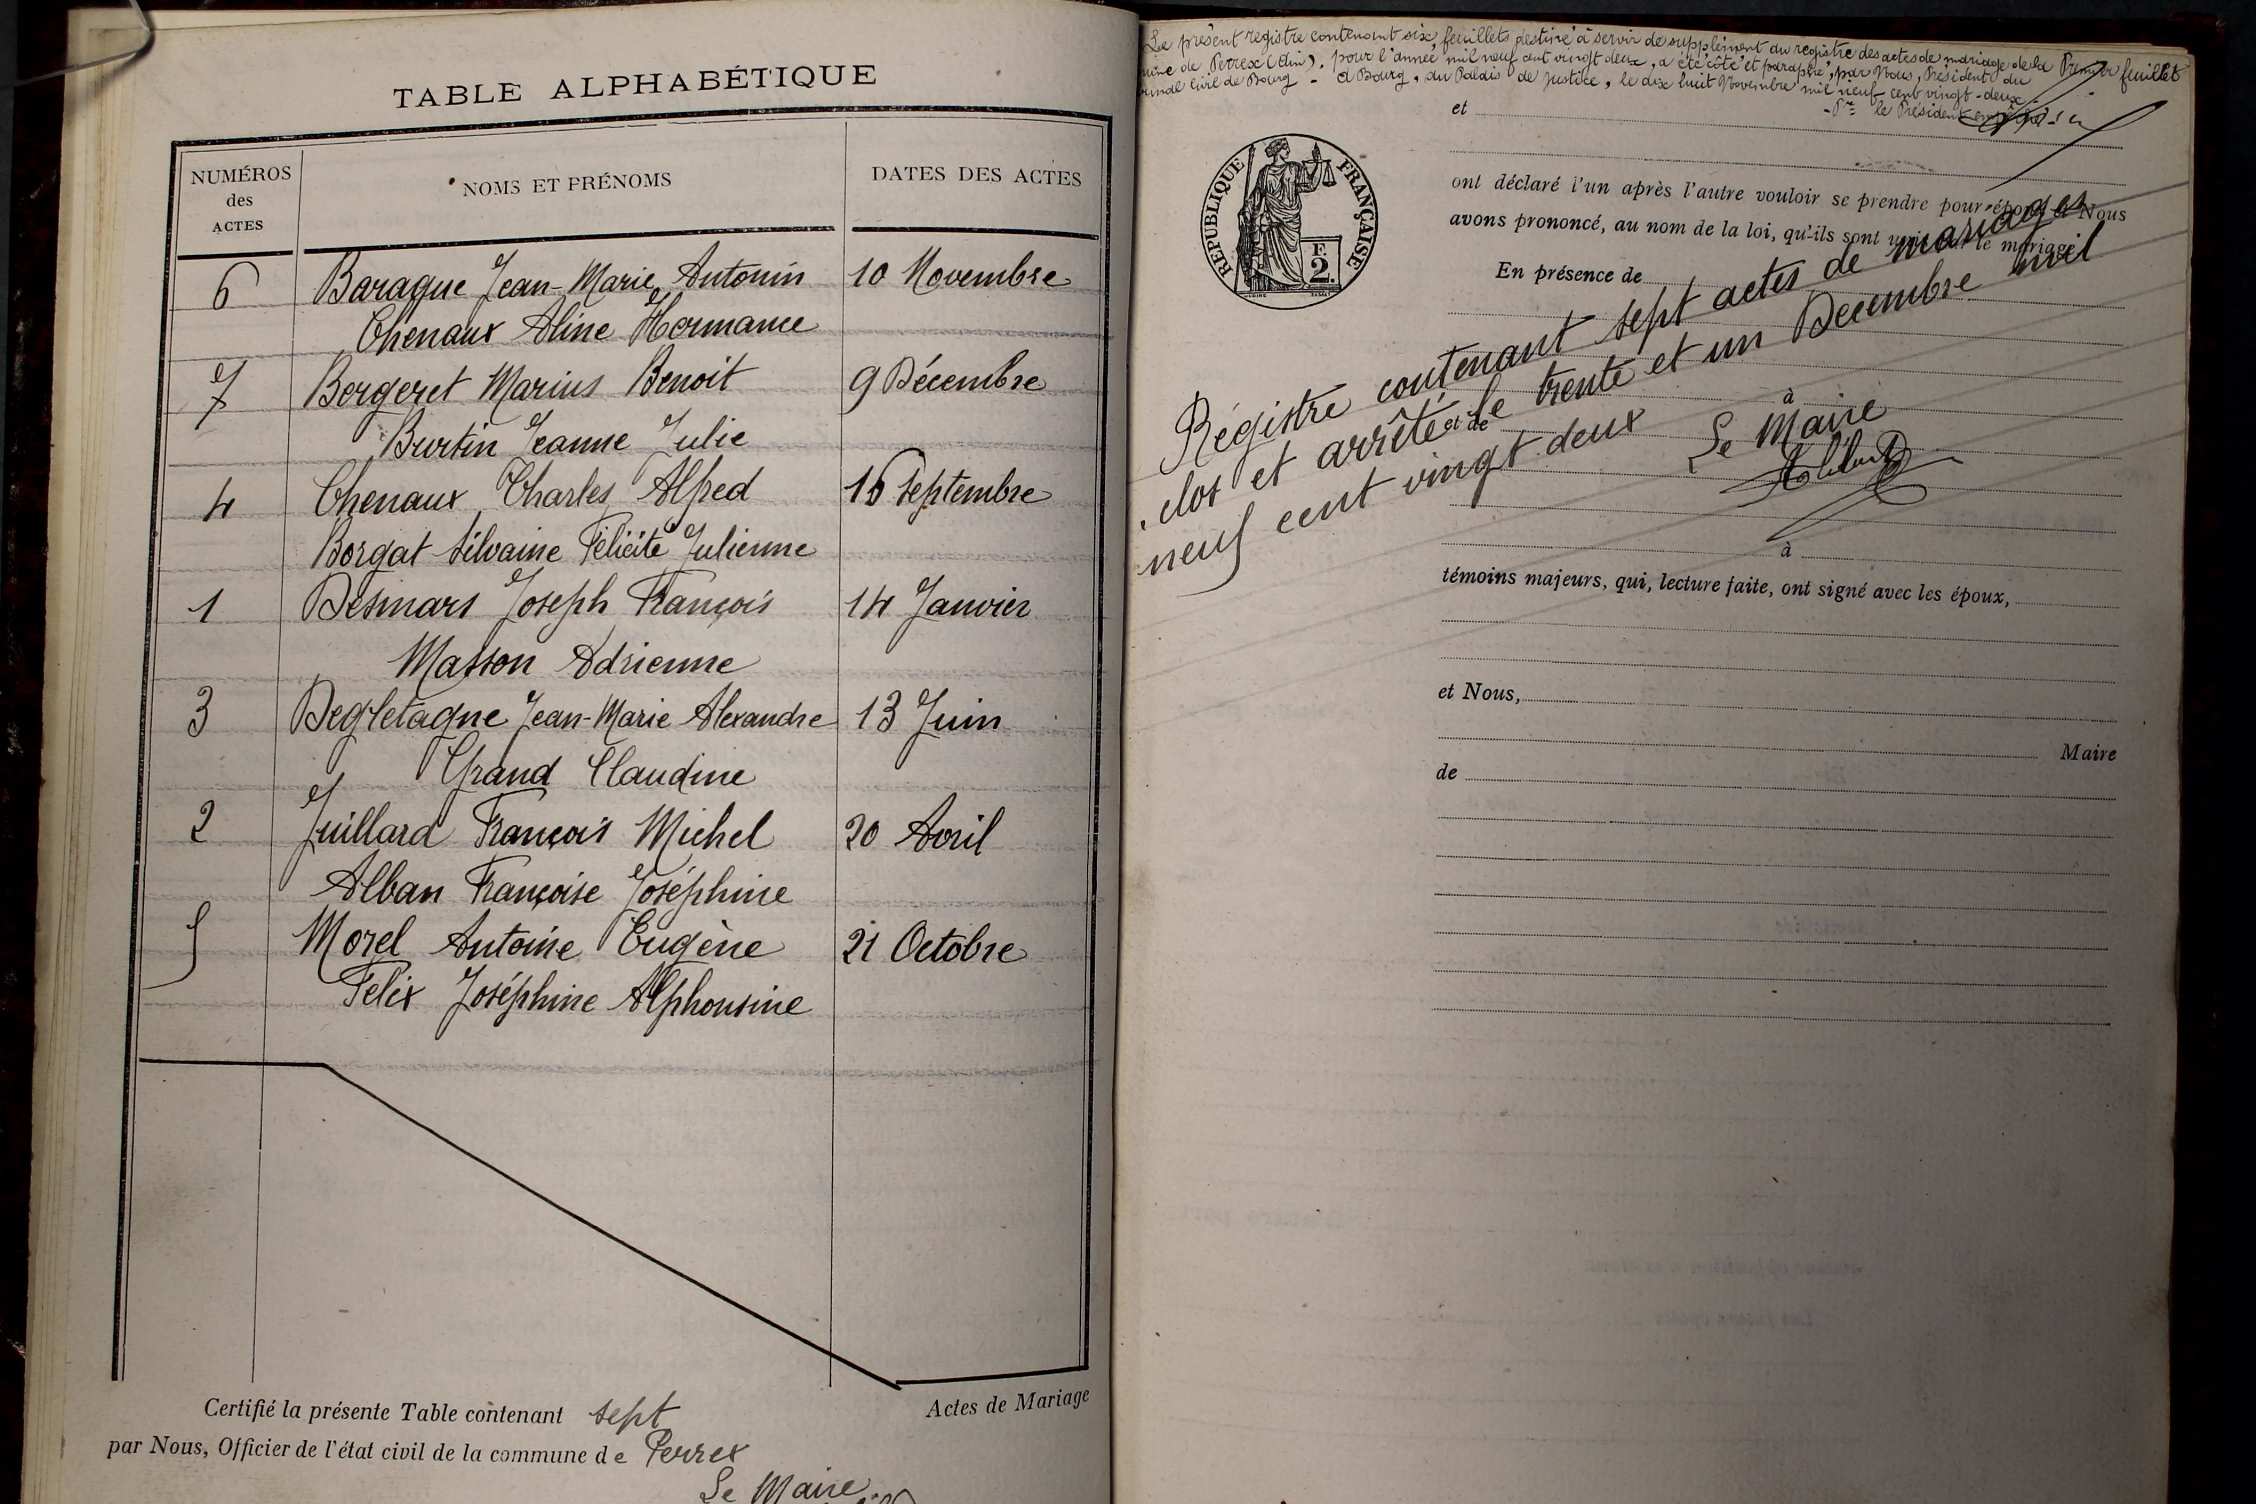 TABLE ALPHABÉTIQUE
NUMÉROS des ACTES
NOMS ET PRÉNOMS
DATES DES ACTES
6 Baraque Jean-Marie Antonin 10 Novembre
Chenaux Aline Hermance
7 Bergeret Marius Benoit 9 Décembre
Burtin Jeanne Julie
4 Chenaux Charles Alfred 16 Septembre
Borgat Silvaine Félicité Julienne
1 Desmars Joseph François 14 Janvier
Masson Adrienne
3 Degletagne Jean-Marie Alexandre 13 Juin
Grand Claudine
2 Juillard François Michel 20 Avril
Alban Françoise Joséphine
5 Morel Antoine Eugène 21 Octobre
Félix Joséphine Alphonsine
Certifié la présente Table contenant sept Actes de Mariage
par Nous, Officier de l'état civil de la commune de Perrex
Le Maire
Le présent registre contenant six feuillets destiné à servir de supplément du registre des actes de mariage de la
de Perrex (Ain), pour l'année mil neuf cent vingt deux, a été côté et paraphé, par Nous, Président du
civil de Bourg - A Bourg, au Palais de Justice, le dix huit Novembre mil neuf cent vingt-deux
Premier feuillet
le Président
RÉPUBLIQUE FRANÇAISE
F.
2.
et
ont déclaré l'un après l'autre vouloir se prendre pour époux et Nous
avons prononcé, au nom de la loi, qu'ils sont unis par le mariage.
En présence de
Régistre contenant sept actes de mariages
clos et arrêté le trente et un Décembre mil
neuf cent vingt deux
Le Maire
à
et de
à
témoins majeurs, qui, lecture faite, ont signé avec les époux,
et Nous,
Maire
de